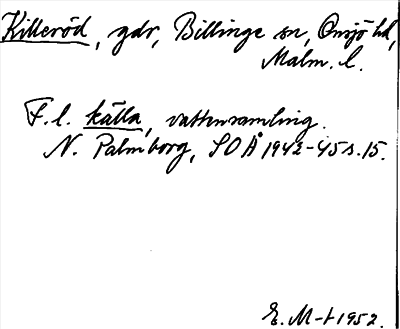 Killeröd, gdr, Billinge sn, Onsjö hd,
Malm. l.
F. l. källa, vattensamling.
N. Palmborg, SOÅ 1942-45 s. 15.
E. M-t 1952.